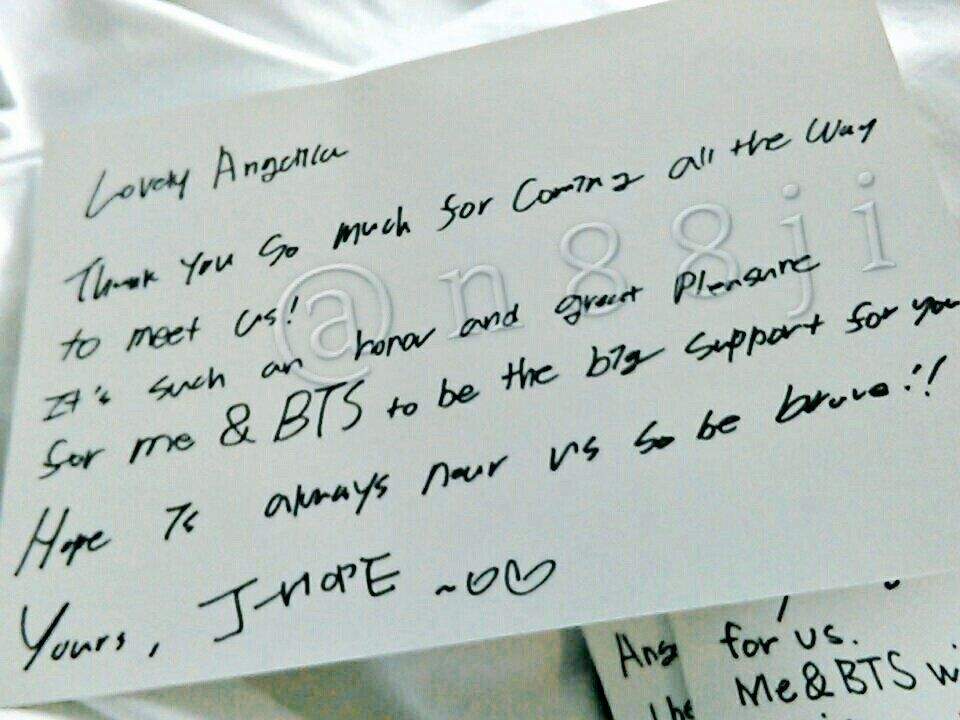 Lovely Angelica
Thank you so much for Coming all the way
to meet us!
It's such an honor and great Pleasure
for me & BTS to be the big support for you
Hope Is always near us so be brave!!
Yours, J-HOPE ~♡♡
@n88ji
Ang
the
for us.
Me&BTS wi